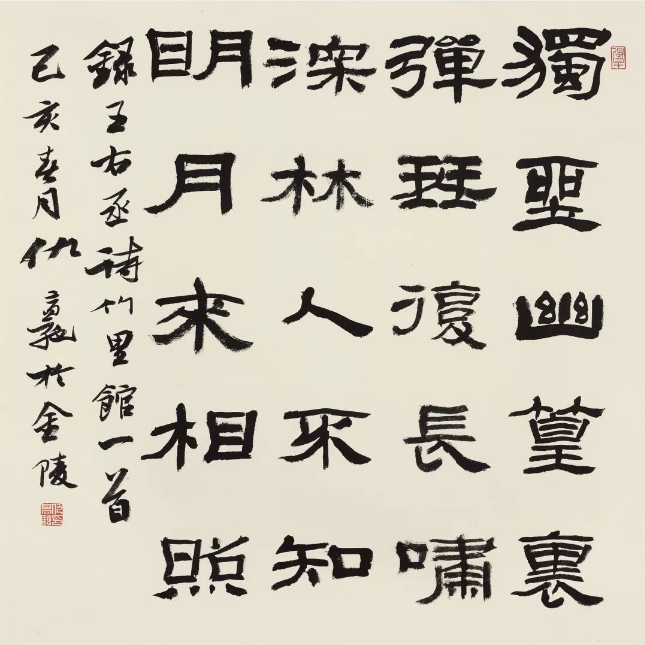 獨坐幽篁裏
彈琴復長嘯
深林人不知
眀月來相照
錄王右丞詩竹里館一首
己亥春月仇於金陵